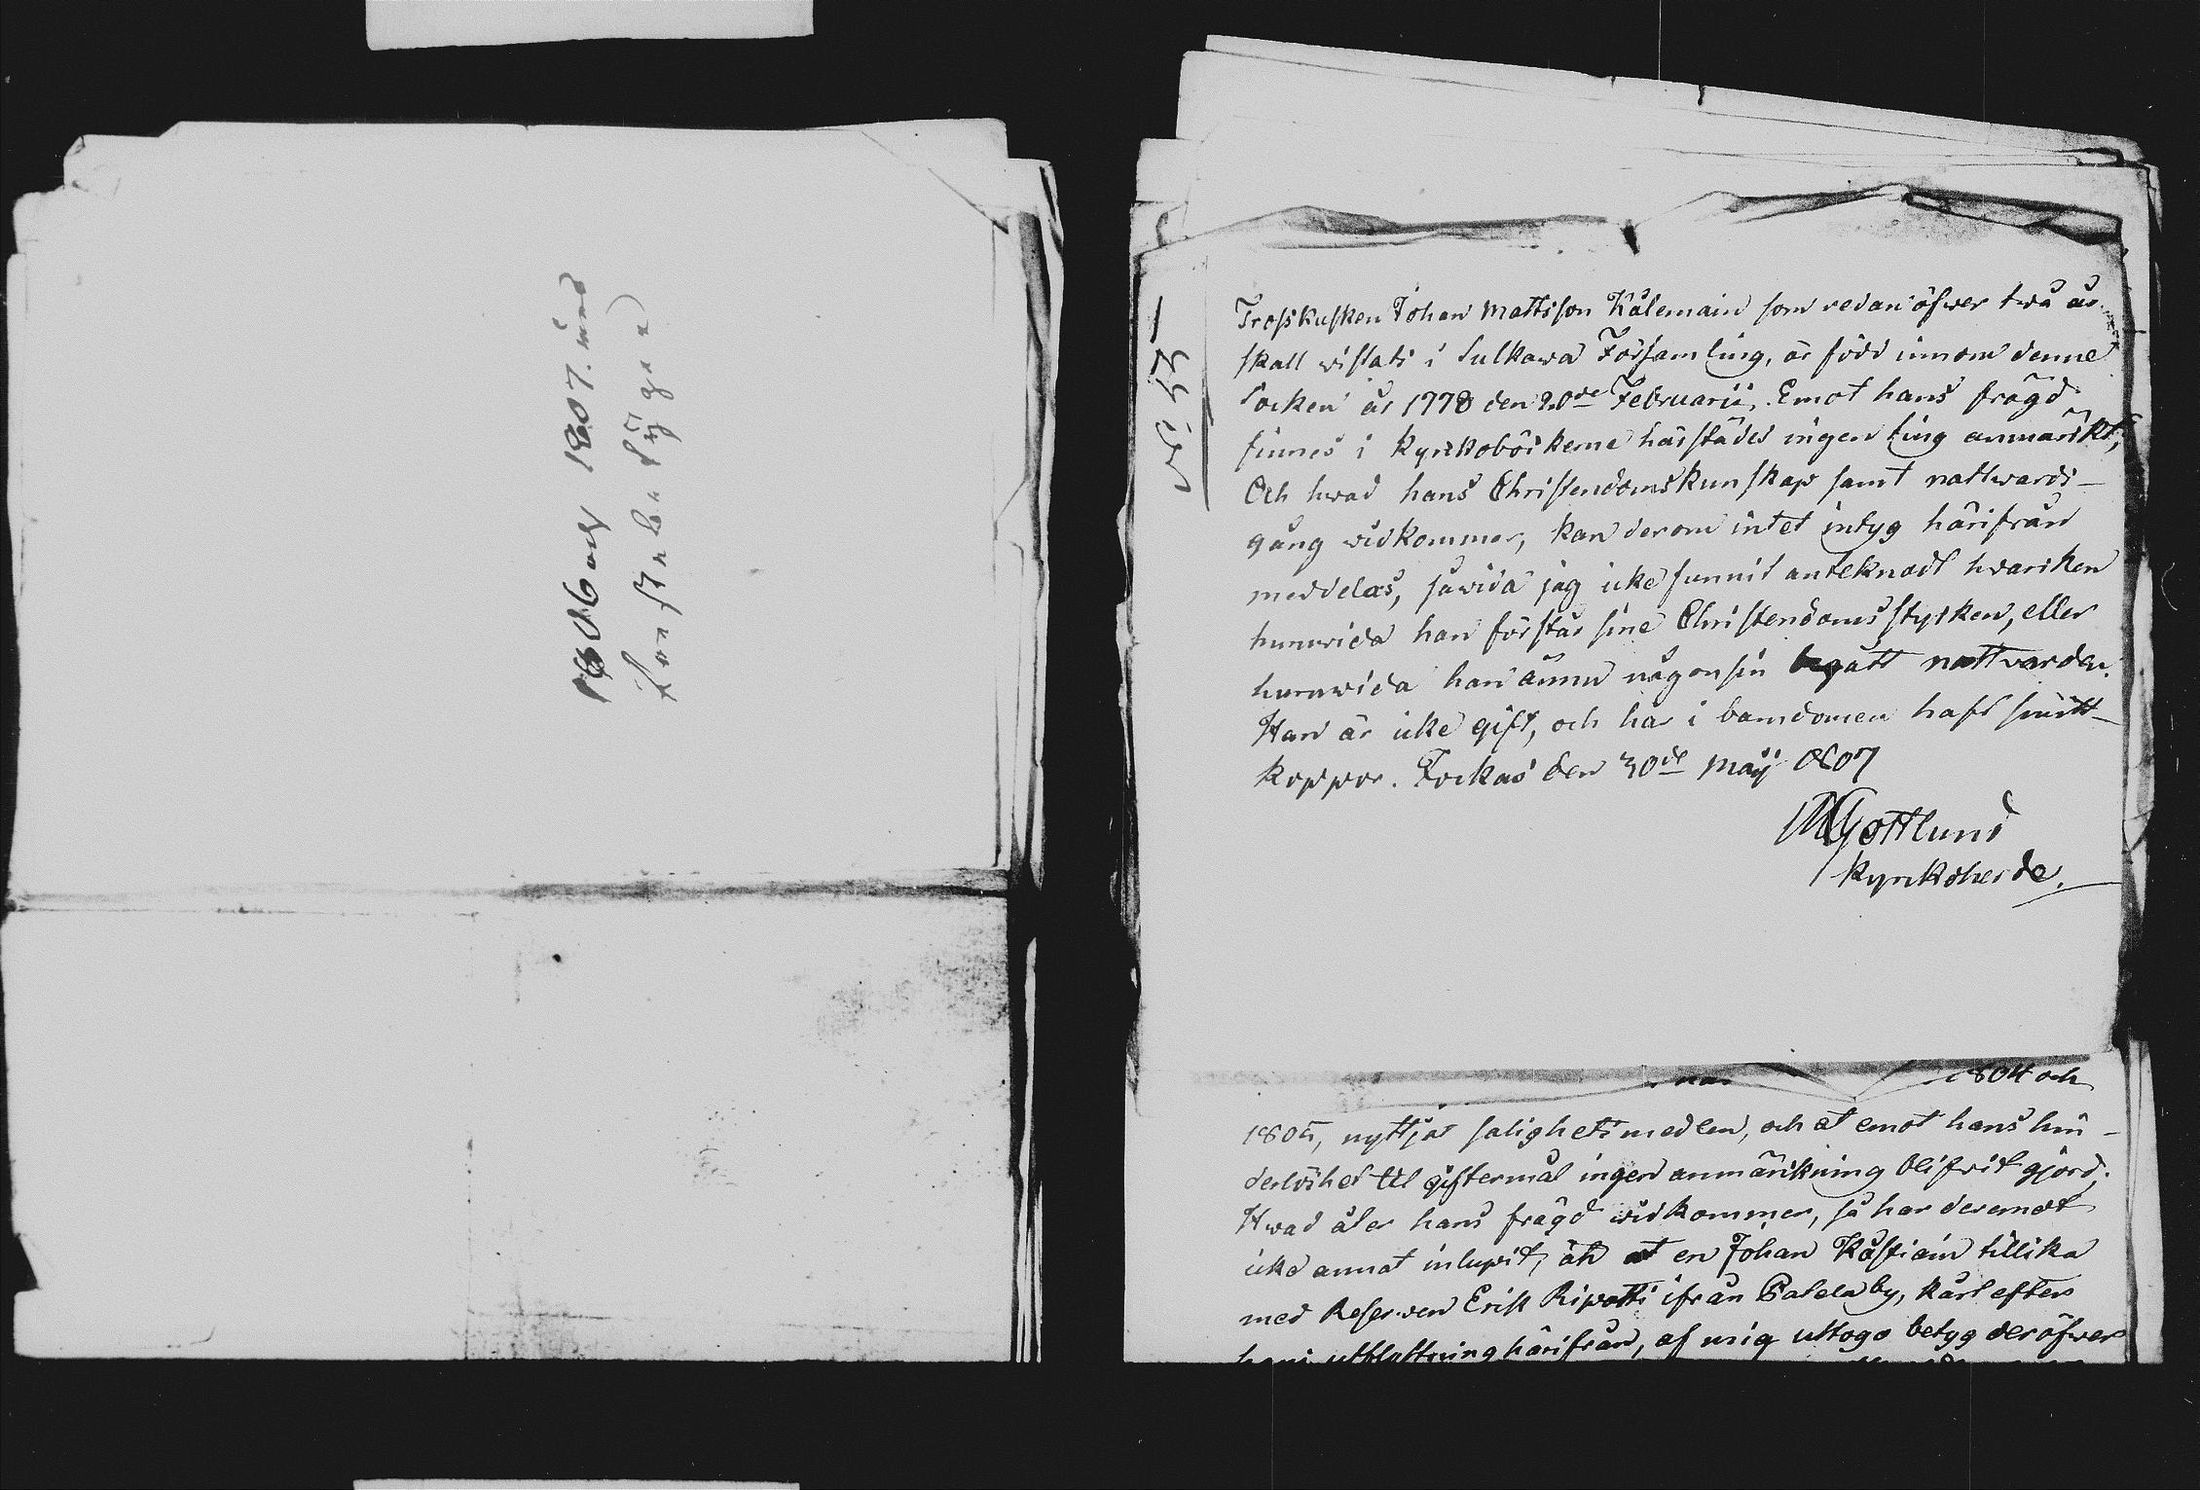 1806 och 1807. med
Lånsta
No 53
Trosskusken Johan Mattsson Kålemain som redan öfwer twå år
skall wistats i Sulkawa Församling, är född innom denne
Socken år 1778 den 20de Februarii. Emot hans frägd
finnes i Kyrkoböckerne härstädes ingen ting anmärkt,
Och hwad hans Christendomskunskap samt nattwards-
gång widkommer, kan derom intet intyg härifrån
meddelas, såwida jag icke funnit anteknadt hwarken
huruwida han förstår sine Christendomsstycken, eller
huruwida han ännu någonsin begått nattvarden.
Han är icke gift, och har i barndomen haft smitt-
koppor. Jockas den 30de Maij 1807
MGottlund
Kyrkoherde.
1804 och
1805, nyttjat salighetsmedlen, och at emot hans hin-
derlöshet til giftermål ingen anmärkning blifwit gjord.
Hwad åter hans frägd widkommer, så har deremot
icke annat inlupit, än at en Johan Kåstiain tillika
med Reserven Erik Ripatti ifrån Patala by, kårt efter
hans utflyttning härifrån, af mig uttogo betyg deröfwer